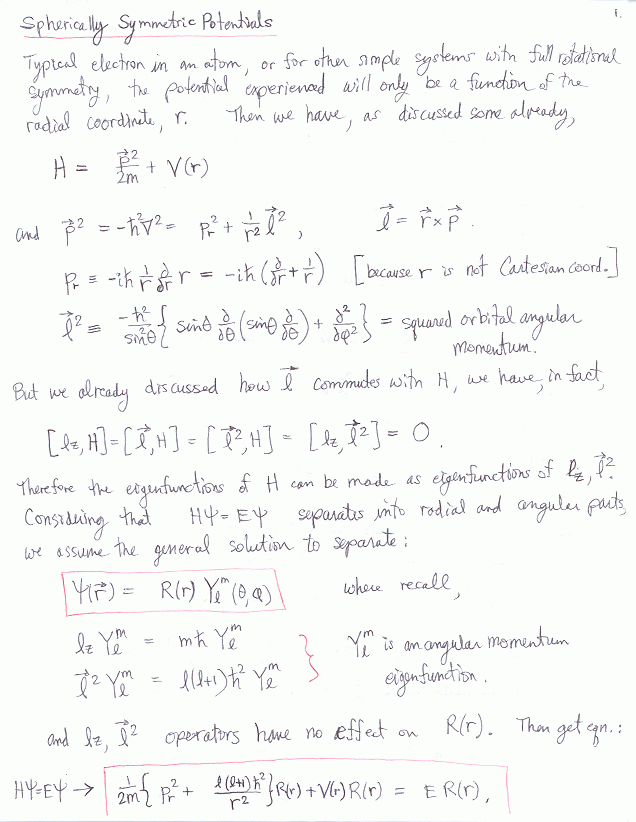 1.
Spherically Symmetric Potentials
Typical electron in an atom, or for other simple systems with full rotational
symmetry, the potential experienced will only be a function of the
radial coordinate, r. Then we have, as discussed some already,
H = p⃗²/2m + V(r)
and p⃗² = -ħ²∇² = p_r² + 1/r² l⃗², l⃗ = r⃗ × p⃗.
p_r ≡ -iħ 1/r ∂/∂r r = -iħ (∂/∂r + 1/r) [because r is not Cartesian coord.]
l⃗² ≡ -ħ²/sin²θ { sinθ ∂/∂θ (sinθ ∂/∂θ) + ∂²/∂φ² } = squared orbital angular
momentum.
But we already discussed how l⃗ commutes with H, we have, in fact,
[l_z, H] = [l⃗, H] = [l⃗², H] = [l_z, l⃗²] = 0.
Therefore the eigenfunctions of H can be made as eigenfunctions of l_z, l⃗².
Considering that HΨ = EΨ separates into radial and angular parts,
we assume the general solution to separate:
Ψ(r⃗) = R(r) Y_l^m (θ, φ) where recall,
l_z Y_l^m = mħ Y_l^m
l⃗² Y_l^m = l(l+1)ħ² Y_l^m
} Y_l^m is an angular momentum
eigenfunction.
and l_z, l⃗² operators have no effect on R(r). Then get eqn.:
HΨ=EΨ → 1/2m { p_r² + l(l+1)ħ²/r² } R(r) + V(r) R(r) = E R(r),